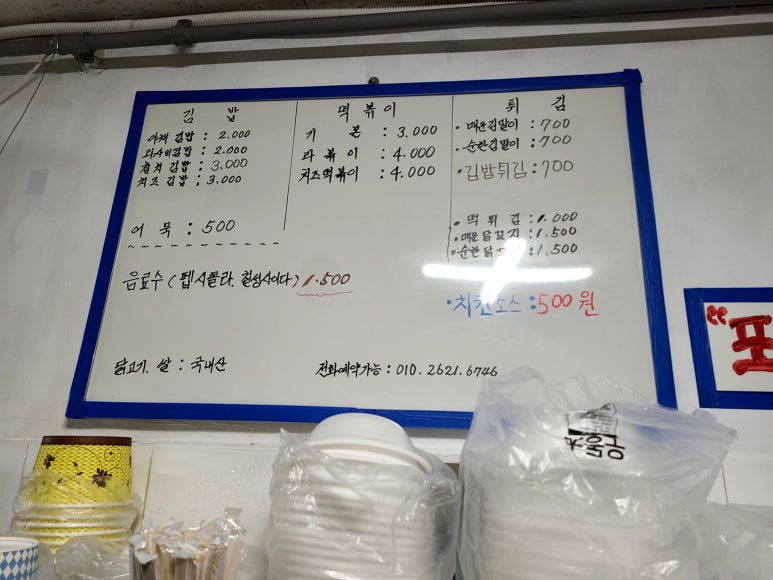 김 밥
야채 김밥 : 2.000
와사비김밥 : 2.000
참치 김밥 : 3,000
치즈 김밥 : 3,000
어 묵 : 500
떡 볶 이
기 본 : 3.000
라 볶 이 : 4,000
치즈떡볶이 : 4,000
튀 김
• 매운김말이 : 700
• 순한김말이 : 700
• 김밥튀김 : 700
• 떡 튀 김 : 1.000
• 매운닭꼬치 : 1,500
• 순한닭꼬치 : 1,500
음료수 ( 펩시콜라. 칠성사이다 ) 1.500
• 치킨소스 : 500 원
닭고기. 쌀 : 국내산
전화예약가능 : 010. 2621. 6746
"포